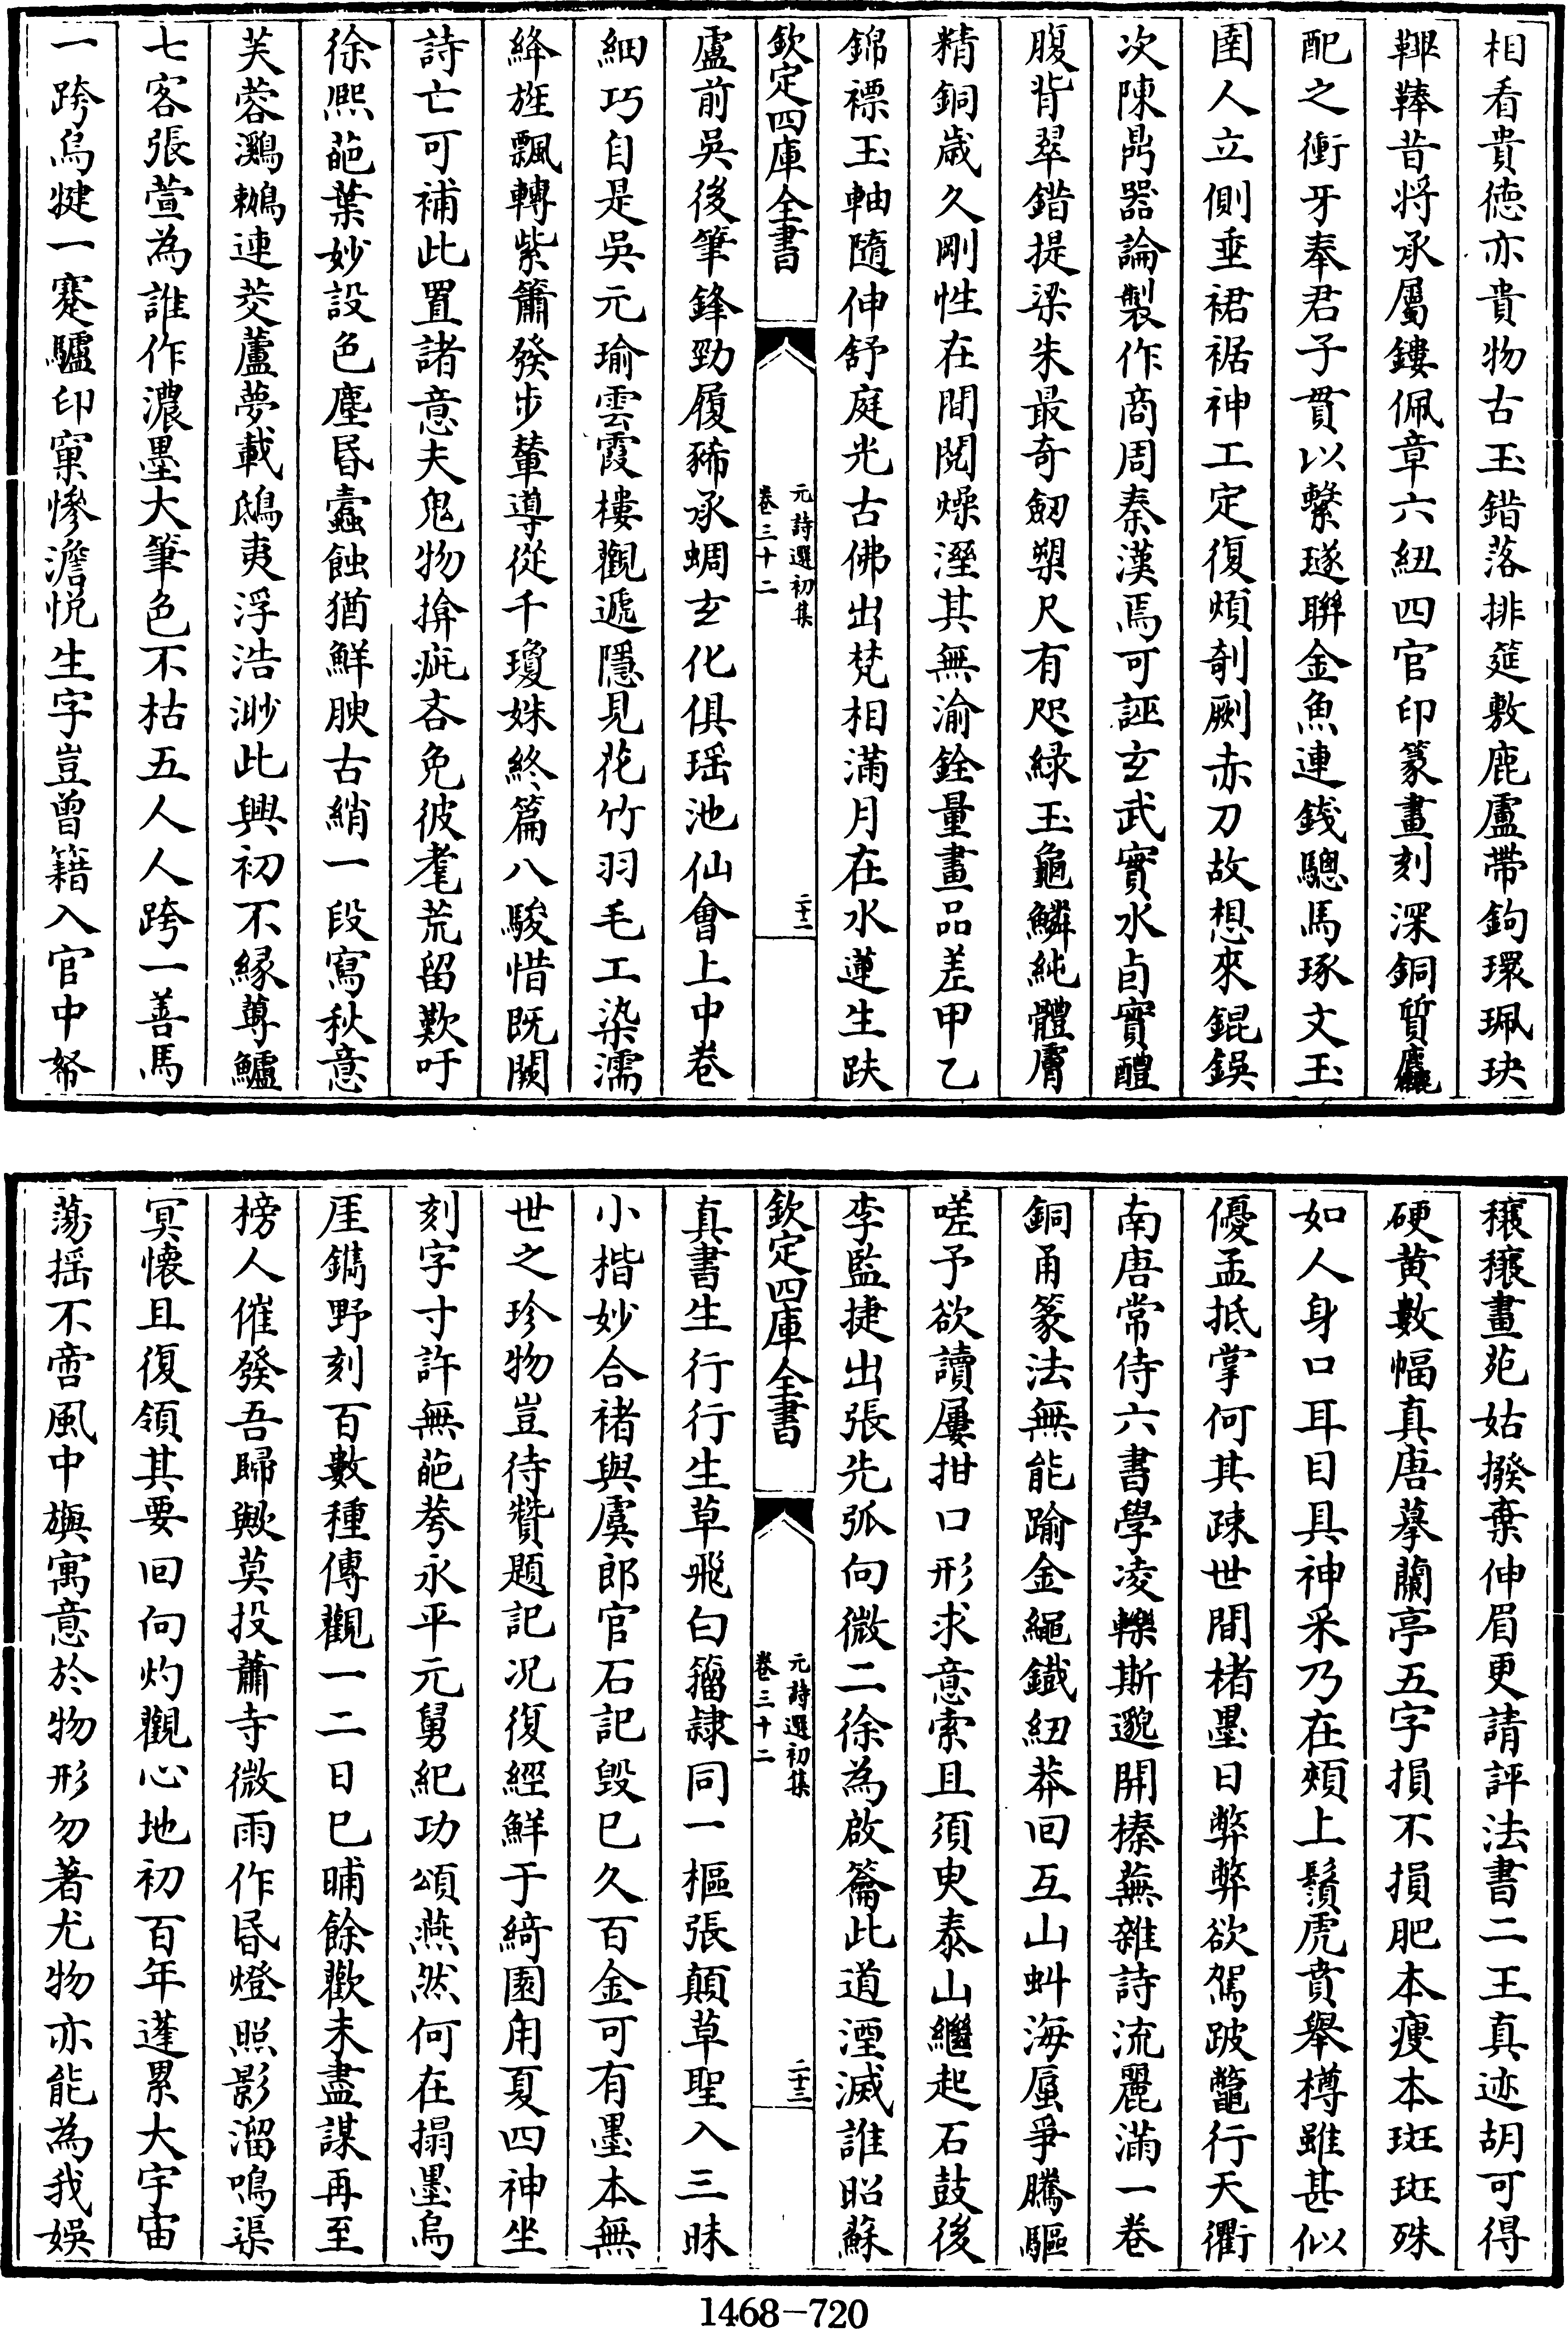 相看貴德亦貴物古玉錯落排筵敷鹿盧帶鉤環珮玦
鞞鞛昔將承屬鏤佩章六紐四官印篆畫刻深銅質麤
配之衝牙奉君子貫以繫璲聯金魚連錢驄馬琢文玉
圉人立側垂裾裾神工定復煩剞劂赤刀故想來錕鋘
次陳鼎器論製作商周秦漢焉可誣玄武實水卣實醴
腹背翠錯提梁朱最奇劒槊尺有咫綠玉龜鱗純體膚
精銅歲久剛性在閒閱燥溼其無渝銓量畫品差甲乙
錦褾玉軸隨伸舒庭光古佛出梵相滿月在水蓮生趺
欽定四庫全書
元詩選初集
卷三十二
二十二
盧前吳後筆鋒勁履豨承蜩玄化俱瑶池仙會上中卷
細巧自是吳元瑜雲霞樓觀遞隱見花竹羽毛工染濡
絳旌飄轉紫簫發步輦導從千瓊姝終篇八駿惜既闕
詩亡可補此置諸意夫鬼物揜疵吝免彼耄荒留歎吁
徐熙葩葉妙設色塵昏蠹蝕猶鮮腴古綃一段寫秋意
芙蓉鸂鶒連茭蘆夢載鴟夷浮浩渺此興初不緣蓴鱸
七客張萱為誰作濃墨大筆色不枯五人人跨一善馬
一跨烏犍一蹇驢印窠慘澹悅生字豈曾籍入官中帑
穰穰畫苑姑撥棄伸眉更請評法書二王真迹胡可得
硬黄數幅真唐摹蘭亭五字損不損肥本瘦本斑斑殊
如人身口耳目具神采乃在頰上鬚虎賁舉樽雖甚似
優孟抵掌何其疎世間楮墨日弊弊欲駕跛鼈行天衢
南唐常侍六書學凌轢斯邈開榛蕪雜詩流麗滿一卷
銅甬篆法無能踰金繩鐵紐莽回互山虯海蜃爭騰驅
嗟予欲讀屢拑口形求意索且須臾泰山繼起石鼓後
李監捷出張先弧向微二徐為啟籥此道湮滅誰昭蘇
欽定四庫全書
元詩選初集
卷三十二
二十三
真書生行行生草飛白籀隸同一樞張顛草聖入三昧
小楷妙合褚與虞郎官石記毀已久百金可有墨本無
世之珍物豈待贊題記况復經鮮于綺園甪夏四神坐
刻字寸許無葩荂永平元舅紀功頌燕然何在搨墨烏
厓鐫野刻百數種傳觀一二日已晡餘歡未盡謀再至
榜人催發吾歸歟莫投蕭寺微雨作昏燈照影溜鳴渠
冥懷且復領其要回向灼觀心地初百年蓬累大宇宙
蕩摇不啻風中旟寓意於物形勿著尤物亦能為我娛
1468-720